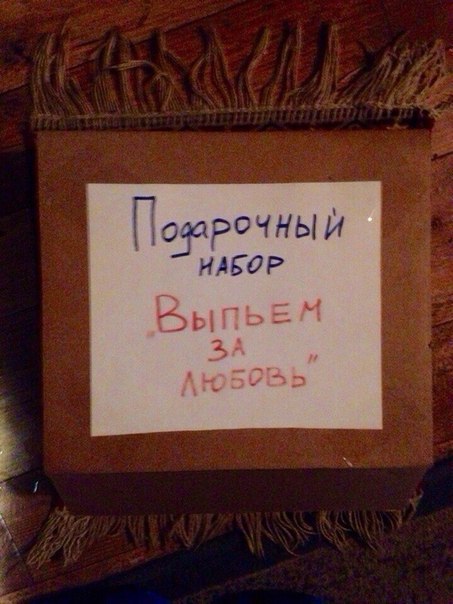 Подарочный
набор
„Выпьем
за
любовь"